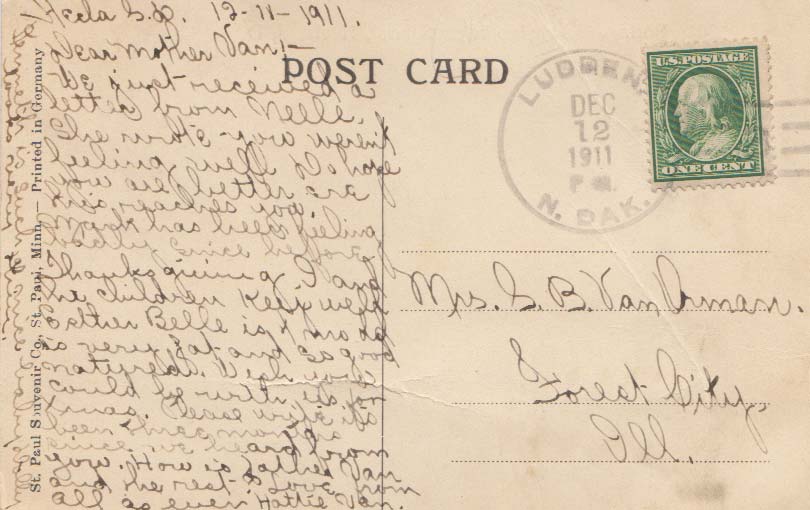 Hecla S.D. 12-11-1911.
Dear Mother Van:-
We just received a
letter from Nelle.
She wrote you weren't
feeling well do hope
you are better ere
this reaches you.
Mark has been feeling
badly since before
Thanksgiving. I and
the children keep well
Esther Belle is 7 mo old
is very fat and so good
natured. Wish you
could be with us for
Xmas. Please write its
been three months
since we heard from
you. How is Father Van
and the rest. Love from
all as ever Hattie Van.
POST CARD
LUDDEN
DEC
12
1911
P M.
N. DAK.
U.S. POSTAGE
ONE CENT
Mrs. S. B. Van Orman.
Forest City,
Ill.
St. Paul Souvenir Co., St. Paul, Minn. — Printed in Germany